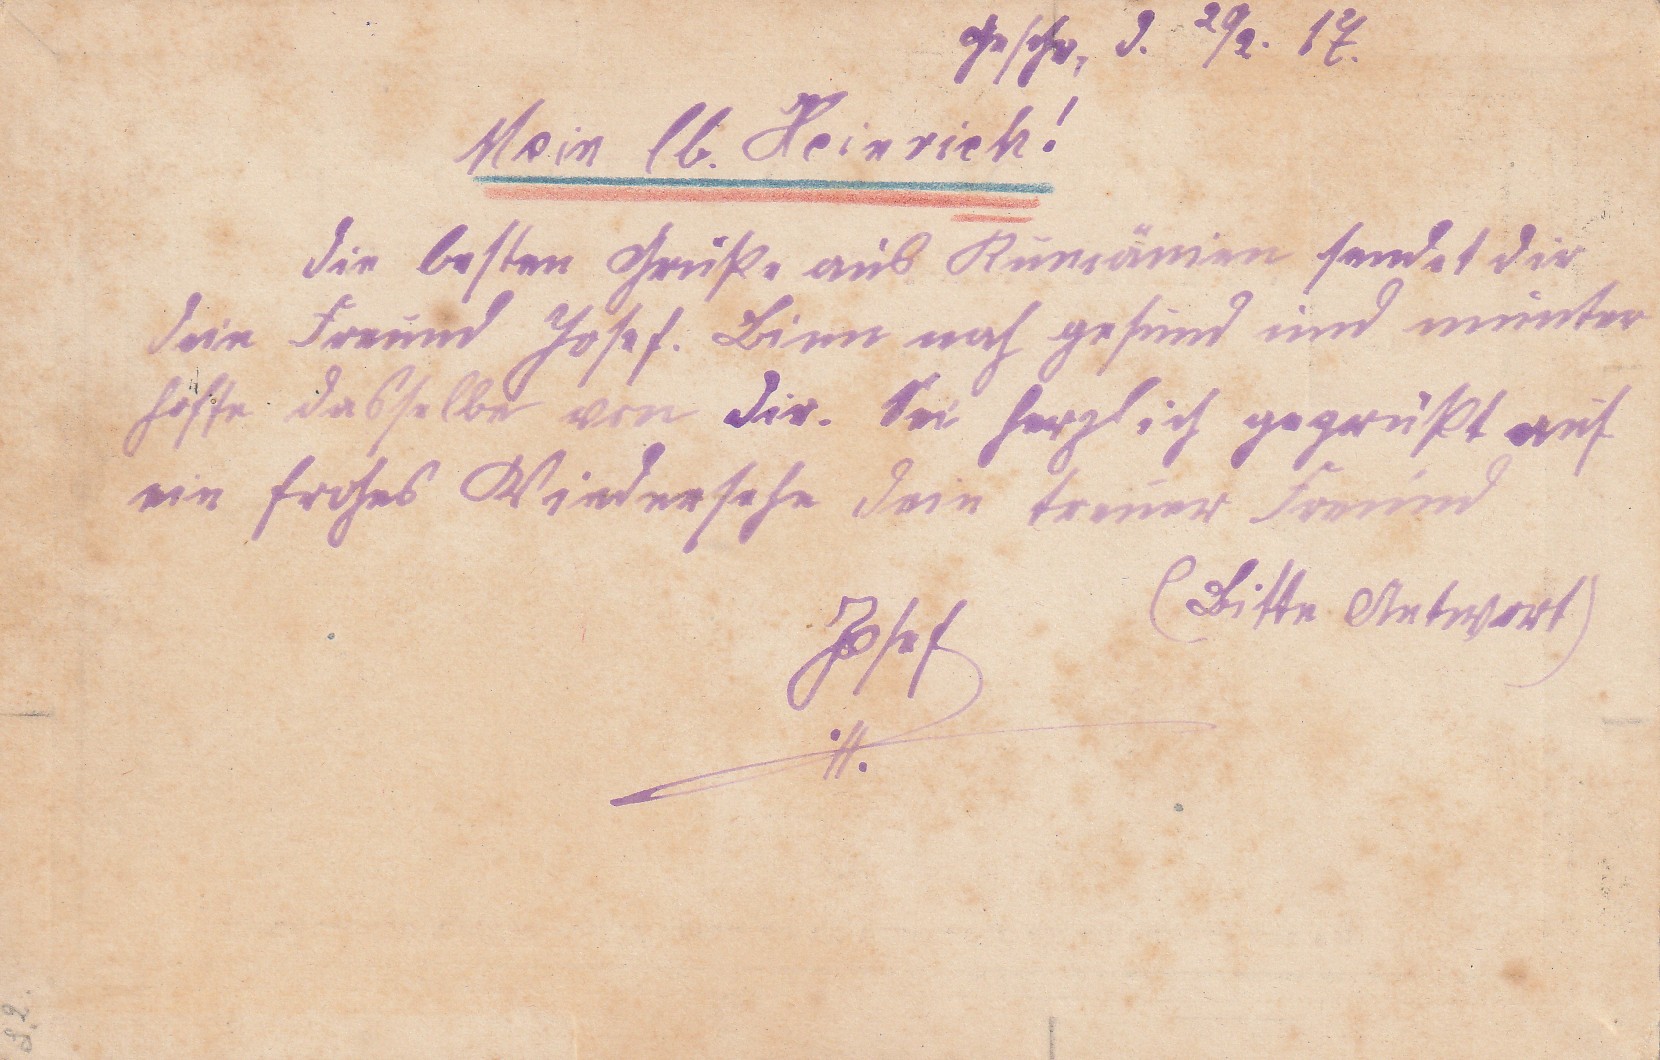 Geschr. d. 20/2. 17.
Mein lb. Heinrich!
die besten Grüße aus Rumänien sendet dir
dein Freund Josef. Binn noch gesund und munter
hoffe dasselbe von dir. Sei herzlich gegrüßt auf
ein frohes Wiedersehe dein treuer Freund
(Bitte Antwort)
Josef